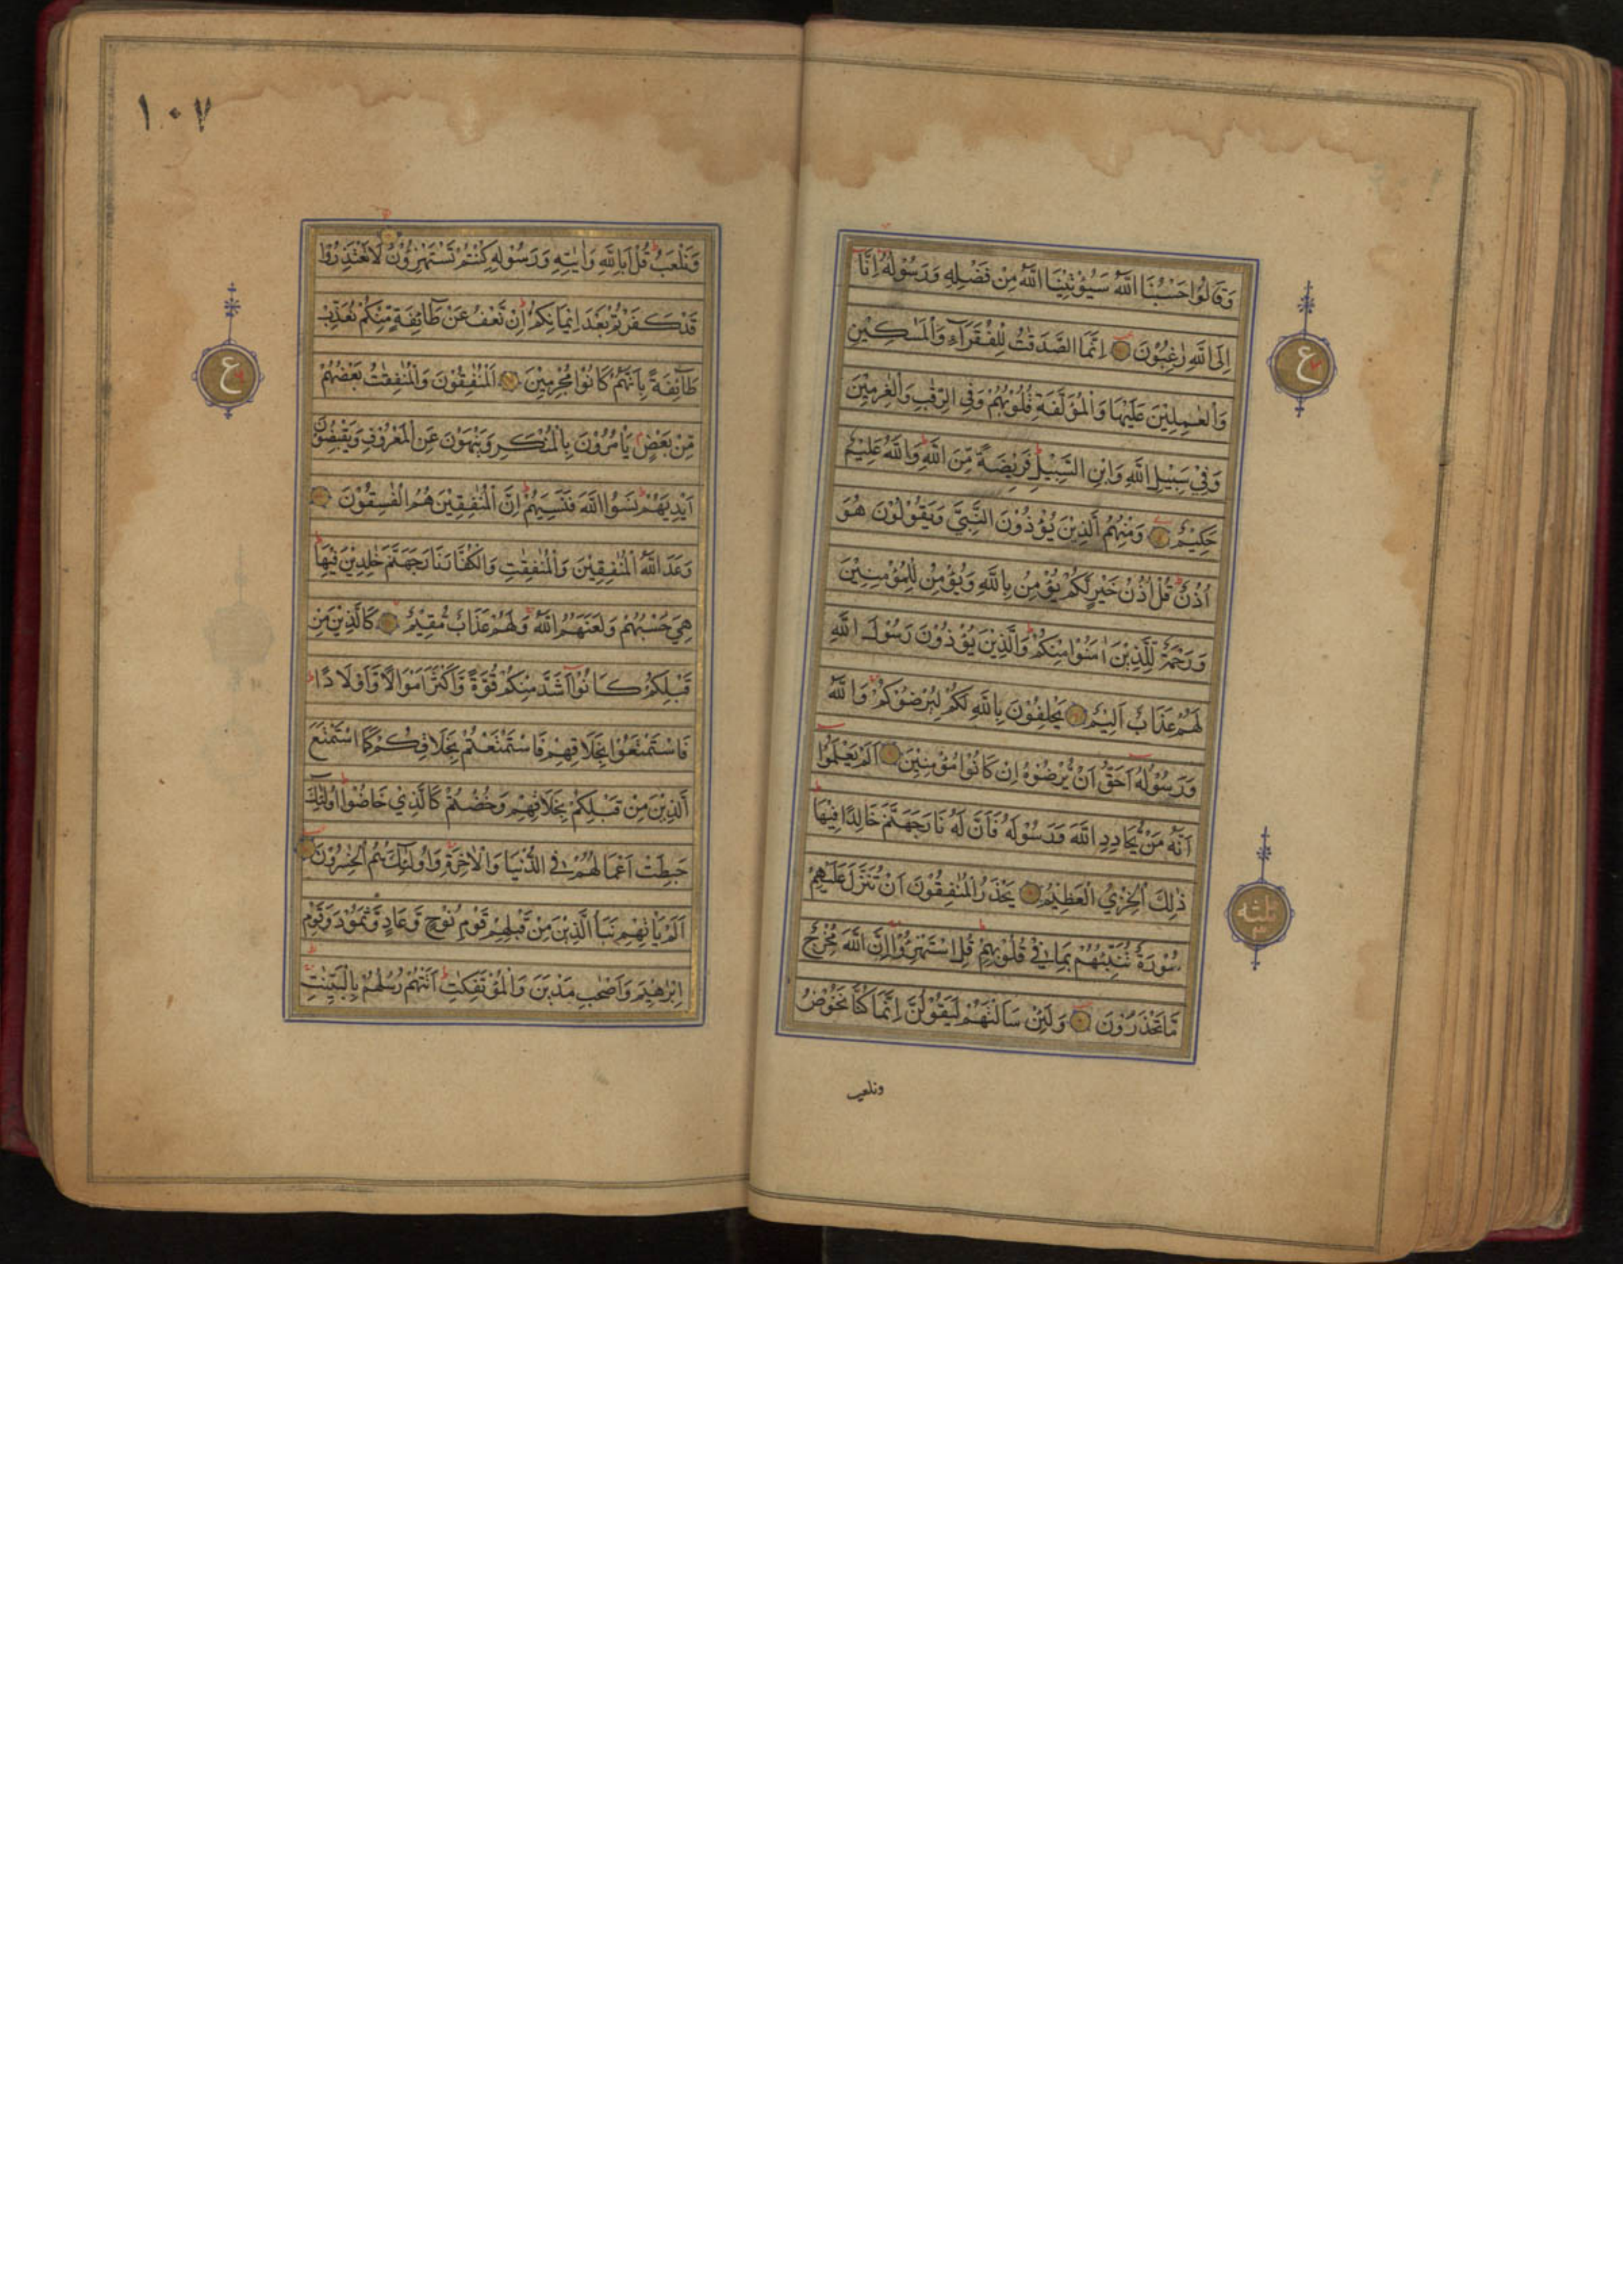 وَقَالُوا حَسْبُنَا اللّٰهُ سَيُؤْتِيْنَا اللّٰهُ مِنْ فَضْلِهٖ وَرَسُوْلُهٗ اِنَّا
اِلَى اللّٰهِ رٰغِبُوْنَ اِنَّمَا الصَّدَقٰتُ لِلْفُقَرَآءِ وَالْمَسٰكِيْنِ
وَالْعٰمِلِيْنَ عَلَيْهَا وَالْمُؤَلَّفَةِ قُلُوْبُهُمْ وَفِي الرِّقَابِ وَالْغٰرِمِيْنَ
وَفِيْ سَبِيْلِ اللّٰهِ وَابْنِ السَّبِيْلِ فَرِيْضَةً مِّنَ اللّٰهِ وَاللّٰهُ عَلِيْمٌ
حَكِيْمٌ وَمِنْهُمُ الَّذِيْنَ يُؤْذُوْنَ النَّبِيَّ وَيَقُوْلُوْنَ هُوَ
اُذُنٌ قُلْ اُذُنُ خَيْرٍ لَّكُمْ يُؤْمِنُ بِاللّٰهِ وَيُؤْمِنُ لِلْمُؤْمِنِيْنَ
وَرَحْمَةٌ لِّلَّذِيْنَ اٰمَنُوْا مِنْكُمْ وَالَّذِيْنَ يُؤْذُوْنَ رَسُوْلَ اللّٰهِ
لَهُمْ عَذَابٌ اَلِيْمٌ يَحْلِفُوْنَ بِاللّٰهِ لَكُمْ لِيُرْضُوْكُمْ وَاللّٰهُ
وَرَسُوْلُهٗ اَحَقُّ اَنْ يُّرْضُوْهُ اِنْ كَانُوْا مُؤْمِنِيْنَ اَلَمْ يَعْلَمُوْا
اَنَّهٗ مَنْ يُّحَادِدِ اللّٰهَ وَرَسُوْلَهٗ فَاَنَّ لَهٗ نَارَ جَهَنَّمَ خَالِدًا فِيْهَا
ذٰلِكَ الْخِزْيُ الْعَظِيْمُ يَحْذَرُ الْمُنٰفِقُوْنَ اَنْ تُنَزَّلَ عَلَيْهِمْ
سُوْرَةٌ تُنَبِّئُهُمْ بِمَا فِيْ قُلُوْبِهِمْ قُلِ اسْتَهْزِءُوْا اِنَّ اللّٰهَ مُخْرِجٌ
مَّا تَحْذَرُوْنَ وَلَئِنْ سَاَلْتَهُمْ لَيَقُوْلُنَّ اِنَّمَا كُنَّا نَخُوْضُ
ونلعب
ع
ثلثه
٣
١٠٧
وَنَلْعَبُ قُلْ اَبِاللّٰهِ وَاٰيٰتِهٖ وَرَسُوْلِهٖ كُنْتُمْ تَسْتَهْزِءُوْنَ لَا تَعْتَذِرُوْا
قَدْ كَفَرْتُمْ بَعْدَ اِيْمَانِكُمْ اِنْ نَّعْفُ عَنْ طَآئِفَةٍ مِّنْكُمْ نُعَذِّبْ
طَآئِفَةً بِاَنَّهُمْ كَانُوْا مُجْرِمِيْنَ اَلْمُنٰفِقُوْنَ وَالْمُنٰفِقٰتُ بَعْضُهُمْ
مِّنْ بَعْضٍ يَاْمُرُوْنَ بِالْمُنْكَرِ وَيَنْهَوْنَ عَنِ الْمَعْرُوْفِ وَيَقْبِضُوْنَ
اَيْدِيَهُمْ نَسُوا اللّٰهَ فَنَسِيَهُمْ اِنَّ الْمُنٰفِقِيْنَ هُمُ الْفٰسِقُوْنَ
وَعَدَ اللّٰهُ الْمُنٰفِقِيْنَ وَالْمُنٰفِقٰتِ وَالْكُفَّارَ نَارَ جَهَنَّمَ خٰلِدِيْنَ فِيْهَا
هِيَ حَسْبُهُمْ وَلَعَنَهُمُ اللّٰهُ وَلَهُمْ عَذَابٌ مُّقِيْمٌ كَالَّذِيْنَ مِنْ
قَبْلِكُمْ كَانُوْا اَشَدَّ مِنْكُمْ قُوَّةً وَّاَكْثَرَ اَمْوَالًا وَّاَوْلَادًا
فَاسْتَمْتَعُوْا بِخَلَاقِهِمْ فَاسْتَمْتَعْتُمْ بِخَلَاقِكُمْ كَمَا اسْتَمْتَعَ
الَّذِيْنَ مِنْ قَبْلِكُمْ بِخَلَاقِهِمْ وَخُضْتُمْ كَالَّذِيْ خَاضُوْا اُولٰٓئِكَ
حَبِطَتْ اَعْمَالُهُمْ فِي الدُّنْيَا وَالْاٰخِرَةِ وَاُولٰٓئِكَ هُمُ الْخٰسِرُوْنَ
اَلَمْ يَاْتِهِمْ نَبَاُ الَّذِيْنَ مِنْ قَبْلِهِمْ قَوْمِ نُوْحٍ وَّعَادٍ وَّثَمُوْدَ وَقَوْمِ
اِبْرٰهِيْمَ وَاَصْحٰبِ مَدْيَنَ وَالْمُؤْتَفِكٰتِ اَتَتْهُمْ رُسُلُهُمْ بِالْبَيِّنٰتِ
ع